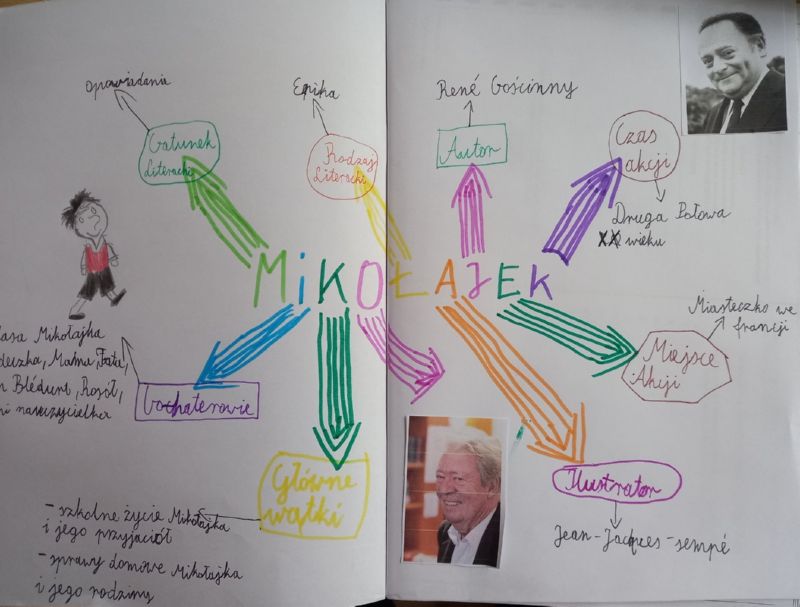 opowiadania
Gatunek
Literacki
Epika
Rodzaj
Literacki
René Gościnny
Autor
Czas
akcji
Druga Połowa
XX wieku
MiKOŁAJEK
Miasteczko we
francji
Miejsce
Akcji
Mikołajka
Mama, Tata,
Blédurt, Rosół,
nauczycielka
Bochaterowie
Główne
wątki
- szkolne życie Mikołajka
i jego przyjaciół
- sprawy domowe Mikołajka
i jego rodziny
Ilustrator
Jean-Jacques-sempé